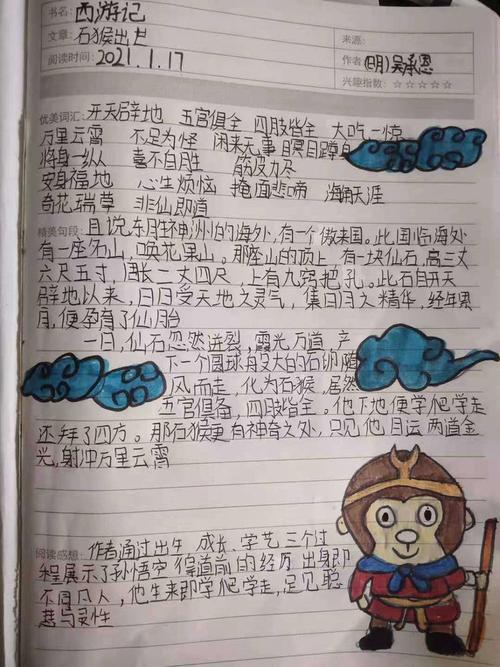 书名: 西游记
文章: 石猴出世
来源:
阅读时间: 2021.1.17
作者 (明)吴承恩
兴趣指数: ☆☆☆☆☆
优美词汇: 开天辟地 五官俱全 四肢皆全 大吃一惊
万里云霄 不足为怪 闲来无事 瞑目蹲身
将身一纵 喜不自胜 筋疲力尽
安身福地 心生烦恼 掩面悲啼 海角天涯
奇花瑞草 非仙即道
精美句段: 且说东胜神洲的海外,有一个傲来国。此国临海处
有一座名山,唤花果山。那座山的顶上,有一块仙石,高三丈
六尺五寸,周长二丈四尺,上有九窍把孔。此石自开天
辟地以来,日日受天地之灵气,集日月之精华,经年累
月,便孕育了仙胎
一日,仙石忽然迸裂,霞光万道,产
下一个圆球般大的石卵随
风而走,化为石猴,居然
五官俱备,四肢皆全。他下地便学爬学走
还拜了四方。那石猴更有神奇之处,只见他目运两道金
光,射冲万里云霄
阅读感想: 作者通过出生、成长、学艺三个过
程展示了孙悟空得道前的经历 出身即
不同凡人,他生来即学爬学走,足见聪
慧与灵性